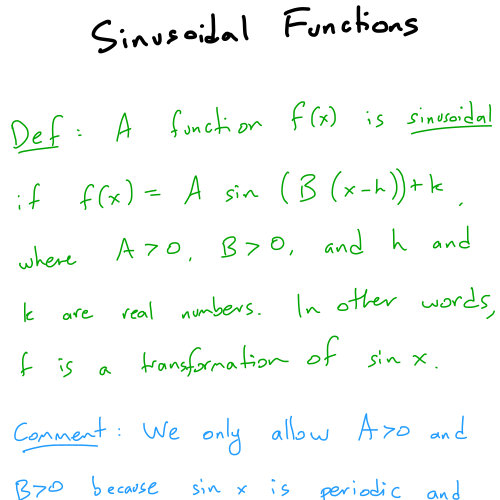 Sinusoidal Functions
Def: A function f(x) is sinusoidal
if f(x) = A sin (B (x-h))+k,
where A>0, B>0, and h and
k are real numbers. In other words,
f is a transformation of sin x.
Comment: We only allow A>0 and
B>0 because sin x is periodic and